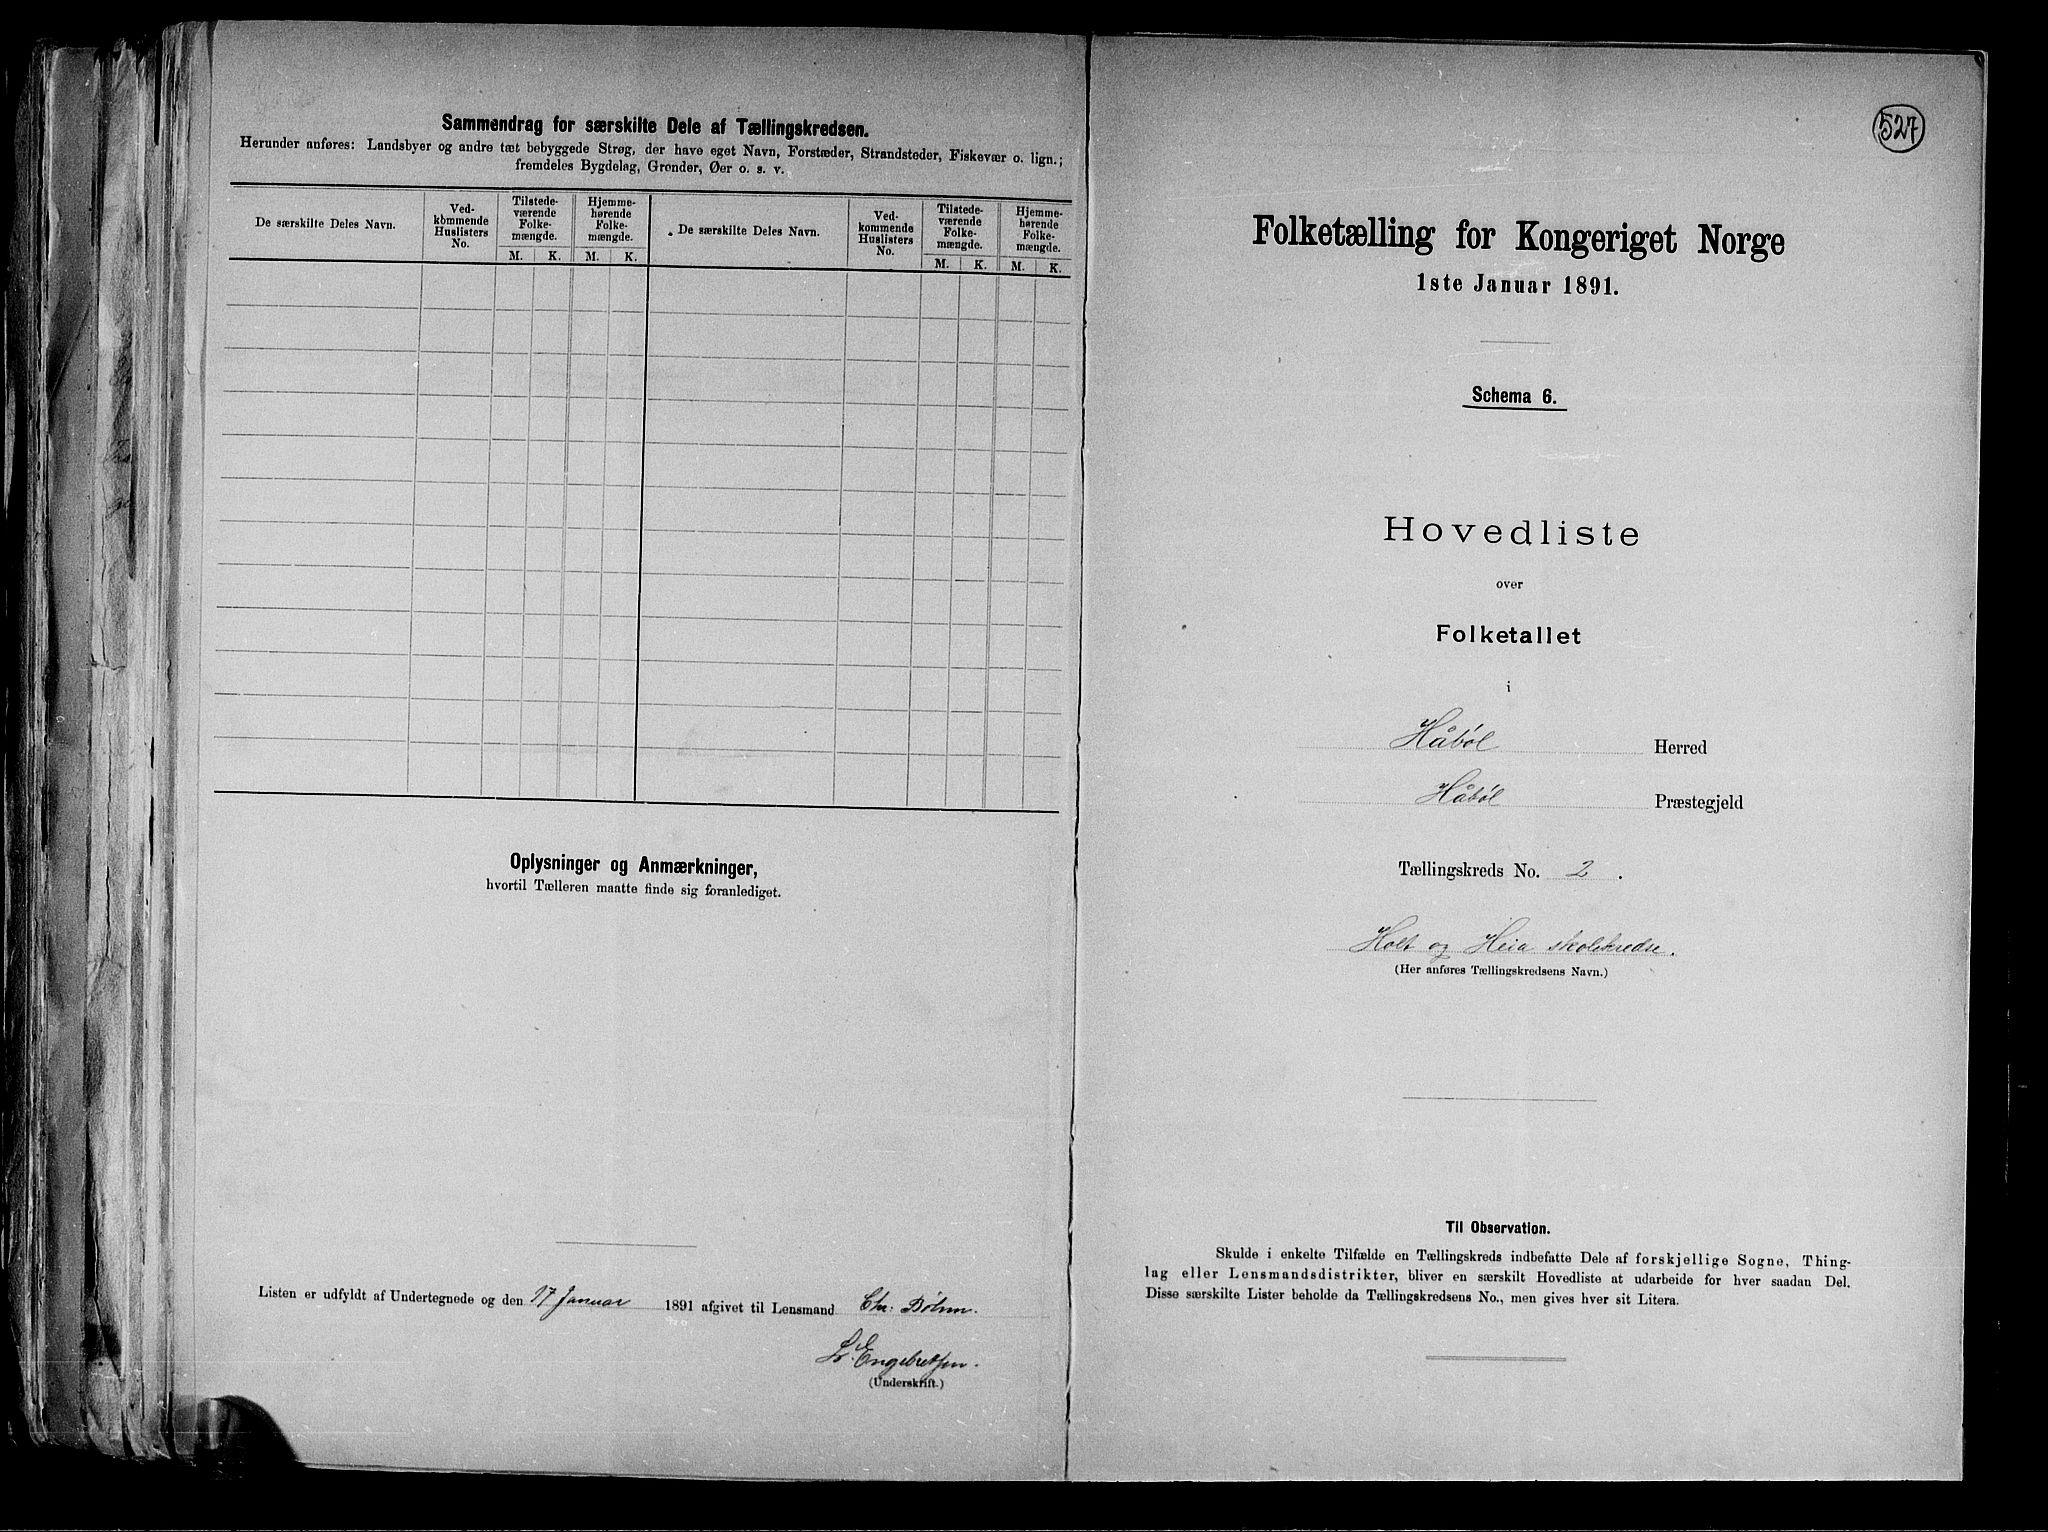 Sammendrag for særskilte Dele af Tællingskredsen.
Herunder anføres: Landsbyer og andre tæt bebyggede Strøg, der have eget Navn, Forstæder, Strandsteder, Fiskevær o. lign.;
fremdeles Bygdelag, Grender, Øer o. s. v.
De særskilte Deles Navn.
Ved-
kommende
Huslisters
No.
Tilstede-
værende
Folke-
mængde.
Hjemme-
hørende
Folke-
mængde.
M. K. M. K.
De særskilte Deles Navn.
Ved-
kommende
Huslisters
No.
Tilstede-
værende
Folke-
mængde.
Hjemme-
hørende
Folke-
mængde.
M. K. M. K.
Oplysninger og Anmærkninger,
hvortil Tælleren maatte finde sig foranlediget.
Listen er udfyldt af Undertegnede og den 17 Januar 1891 afgivet til Lensmand Chr. Böhm.
L. Engebretsen.
(Underskrift.)
527
Folketælling for Kongeriget Norge
1ste Januar 1891.
Schema 6.
Hovedliste
over
Folketallet
i
Håböl Herred
Håböl Præstegjeld
Tællingskreds No. 2.
Holt og Heia skolekredse.
(Her anføres Tællingskredsens Navn.)
Til Observation.
Skulde i enkelte Tilfælde en Tællingskreds indbefatte Dele af forskjellige Sogne, Thing-
lag eller Lensmandsdistrikter, bliver en særskilt Hovedliste at udarbeide for hver saadan Del.
Disse særskilte Lister beholde da Tællingskredsens No., men gives hver sit Litera.